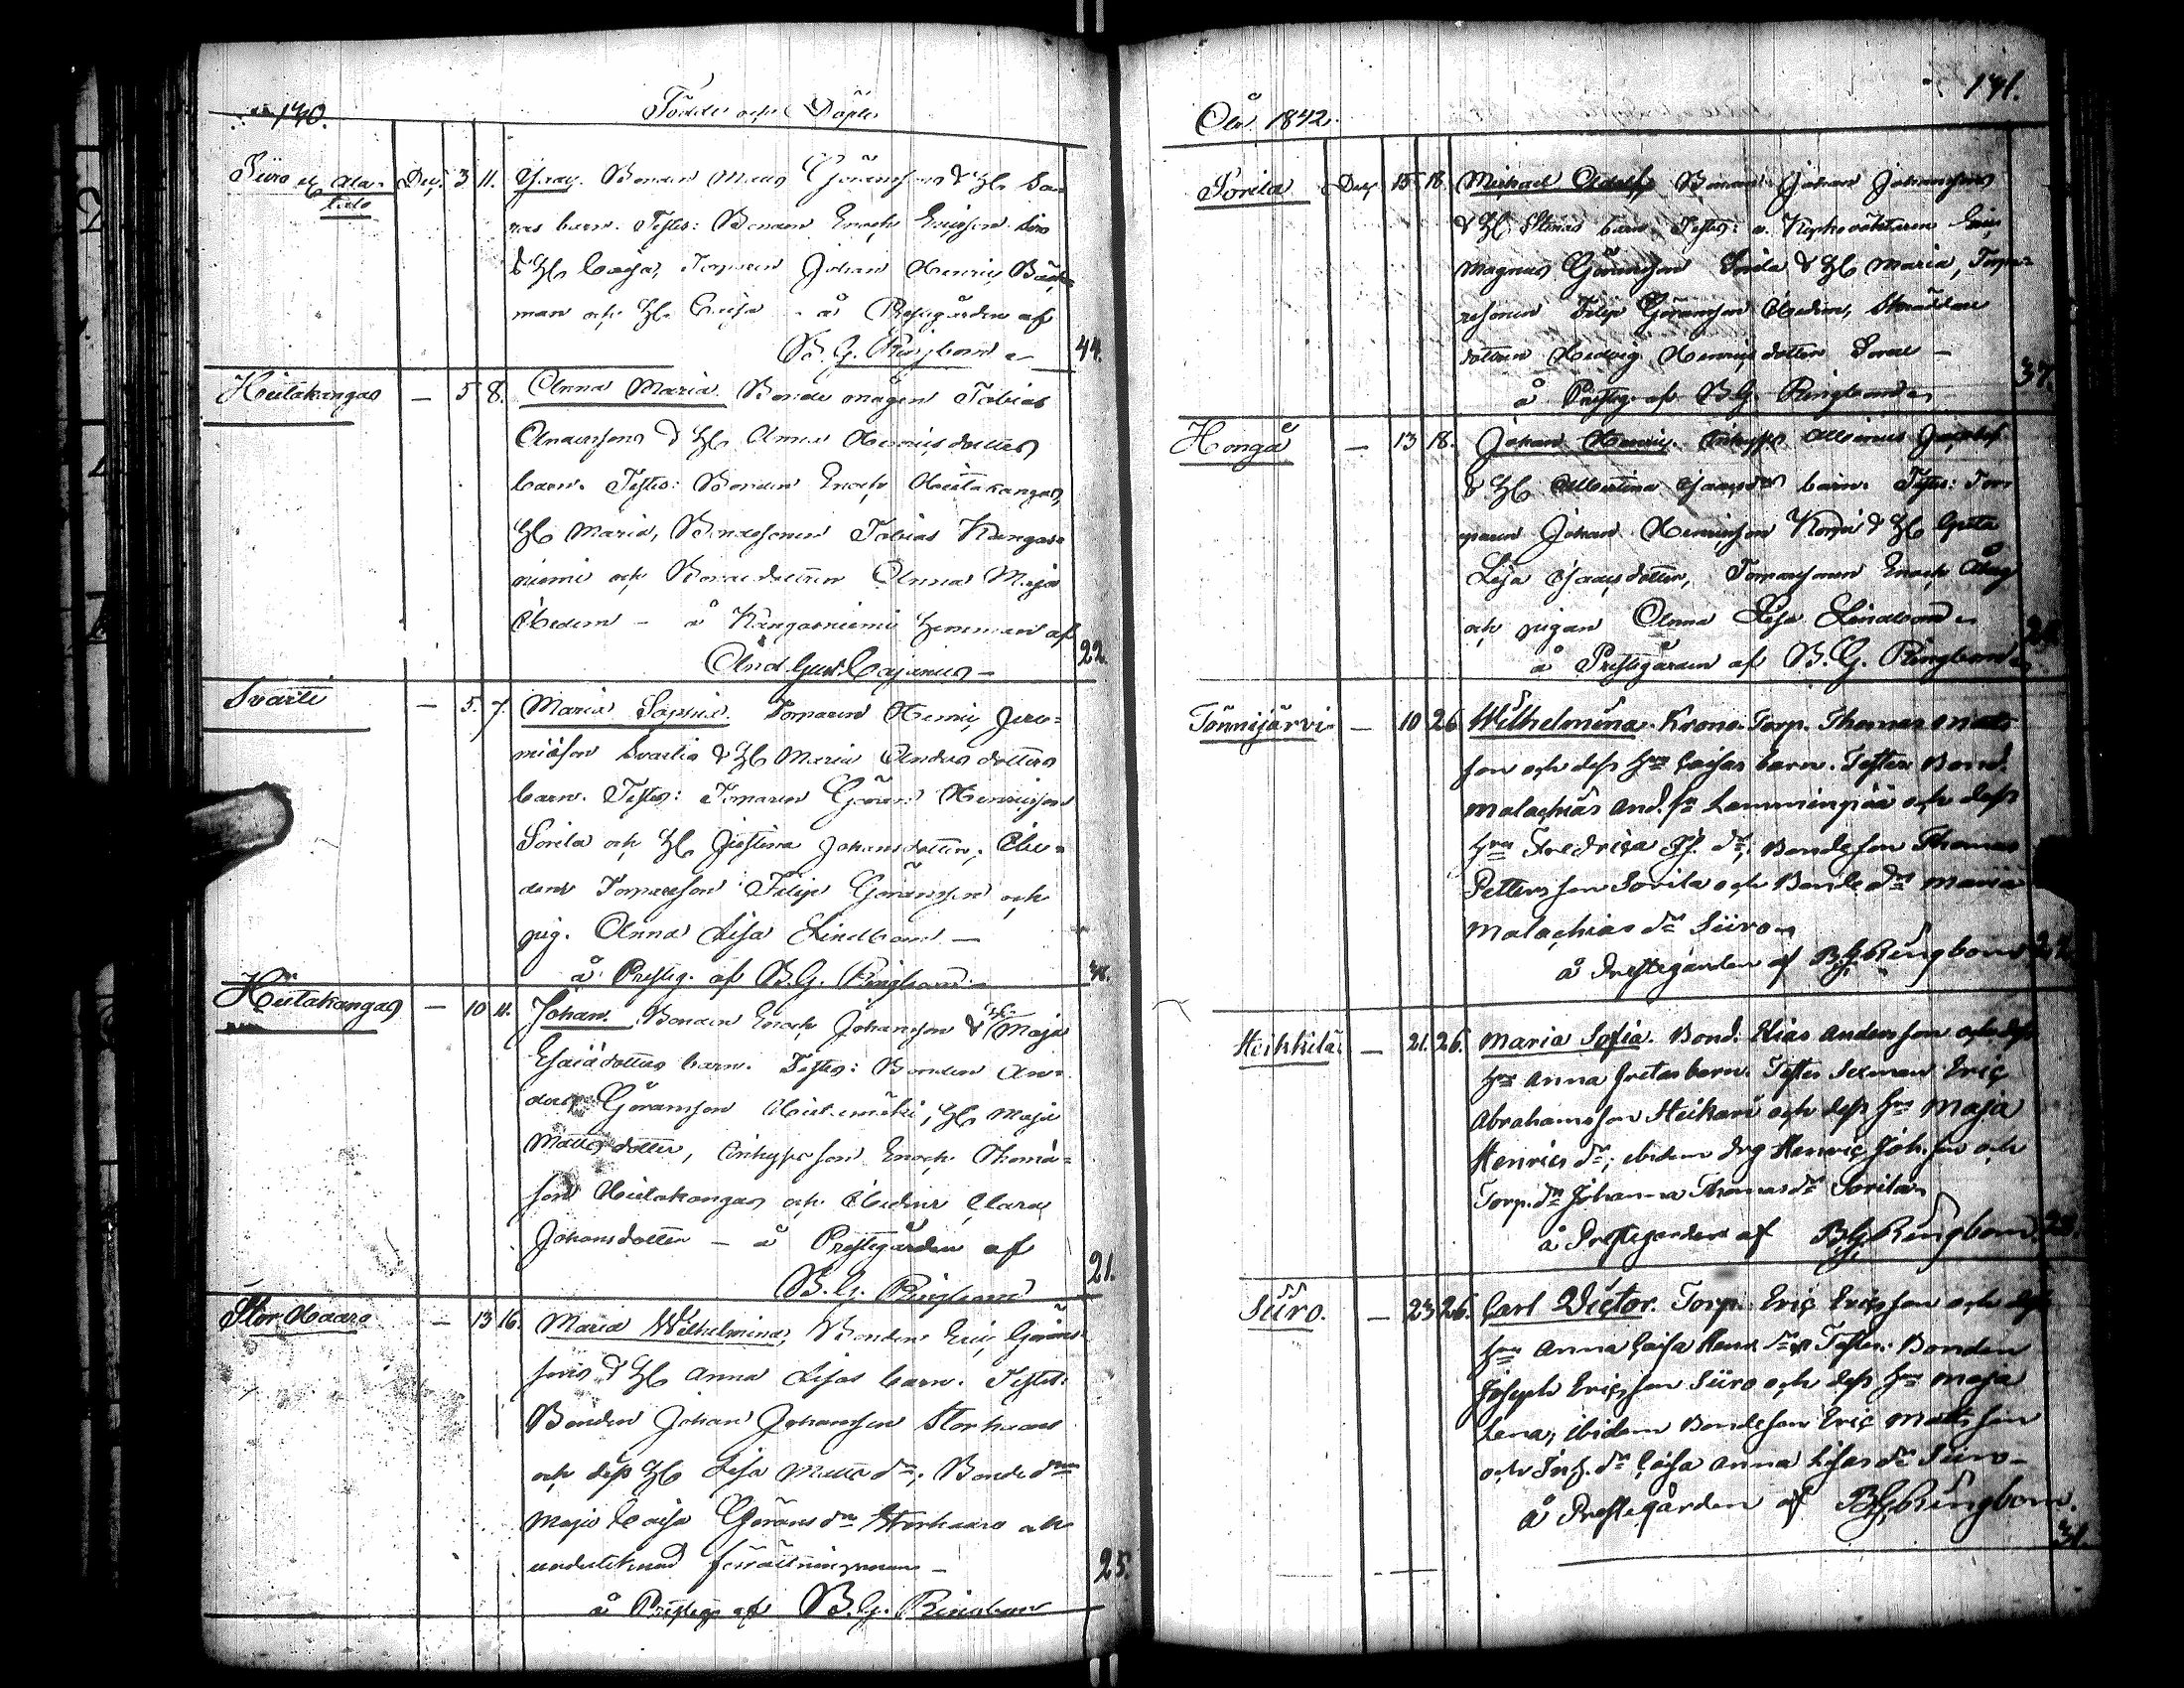 140.
Födde och Döpte
Siiro el Ala-
talo
Dec. 3 11. Isaac. Bonden Matts Göransons & H. Sa-
ras barn. Testes: Bonden Enoch Ericson Siro
& H. Caisa, Torparen Johan Henric Back-
man och H. Caisa - å Prestgården af
B. G. Ringbom
44.
Hiitakangas — 5 8. Anna Maria. Bonde mågen Tobias
Anderssons & H. Anna Henricsdotters
barn. Testes: Bonden Enoch Hiitakangas,
H. Maria, Bondesonen Tobias Kangas-
niemi och Bondedottren Anna Maja
Ibidem - å Kangasniemi hemman af
And. Gust. Cajanus —
22.
Svarti — 5. 7. Maria Sophia. Torparen Henric Jere-
miäson Svartis & H. Maria Anders dotters
barn. Testes: Torparen Göran Henricson
Sorila och H. Justina Johansdotter, Ibi-
dem Torpareson Filip Göransson och
pig. Anna Lisa Lindbom —
å Presteg. af B. G. Ringbom
Hiitakangas — 10 11. Johan. Bonden Enoch Johanson & H. Maja
Esaiädotters barn. Testes: Bonden An-
ders Göranson, H. Maja
Mattsdotter, Inhyseson Enoch Thomä-
son Hiitakangas och Ibidem Clara
Johansdotter — å Prestegården af
B. G. Ringbom
21.
Stor Haaro — 13 16. Maria Wilhelmina, Bonden Eric Görans-
sons & H. Anna Lisas barn. Testes:
Bonden Johan Johanson Storhaaro
och dess H. Lisa Matts dr; Bonde dren
Maja Caisa Görans dr Storhaaro och
undertecknad förrättningsman —
å Presteg. af B. G. Ringbom
25.
141.
År 1842.
Sorila Dec. 15 18. Michael Adolf, Bonden Johan Johansons
& H. Stinas barn. Testes: Eric
Magnus Göranson Sorila & H. Maria, Torpa-
resonen Filip Göranson Ibidem,
dottren Hedvig Henricsdotter —
å Presteg. af B. G. Ringbom
37.
Hongä — 13 18. Johan Henric. Albinus
& H. Albertina Isaacsdrs barn. Testes: Tor-
paren Johan Henricson & H. Greta
Lisa Isaacsdotter, Torparsonen Enoch
och pigan Anna Lisa Lindbom
å Prestegården af B. G. Ringbom
Tönnijärvi — 10 26 Wilhelmina. Krono Torp. Thomas Mats-
son och dess hru Caisas barn. Testes Bond.
Malachias And. sn Lamminpää och dess
hru Fredrica Js. dr; Bondeson Thomas
Petterson Sorila och Bonde dr Maria
Malachias dr Siiro
å Prestegården af BGRingbom
Heikkilä — 21. 26. Maria Sofia. Bond. Elias Anderson och dess
hru Anna Gretas barn. Testes Sexman Eric
Abrahamsson Heikari och dess hru Maja
Henrics dr; ibidem drg Henric Joh. sn och
Torp. dr Johanna Thomas dr Sorila
å Prestegården af BGRingbom.
Siiro. — 23 26. Carl Victor. Torp. Eric Ericsson och dess
hru Anna Caisa Henr. dr Testes: Bonden
Joseph Ericsson Siiro och dess hru Maja
Lena, ibidem Bondeson Eric Matsson
och Inh. dr Caisa Anna Lisas dr Siiro —
å Prestegården af BGRingbom.
31.